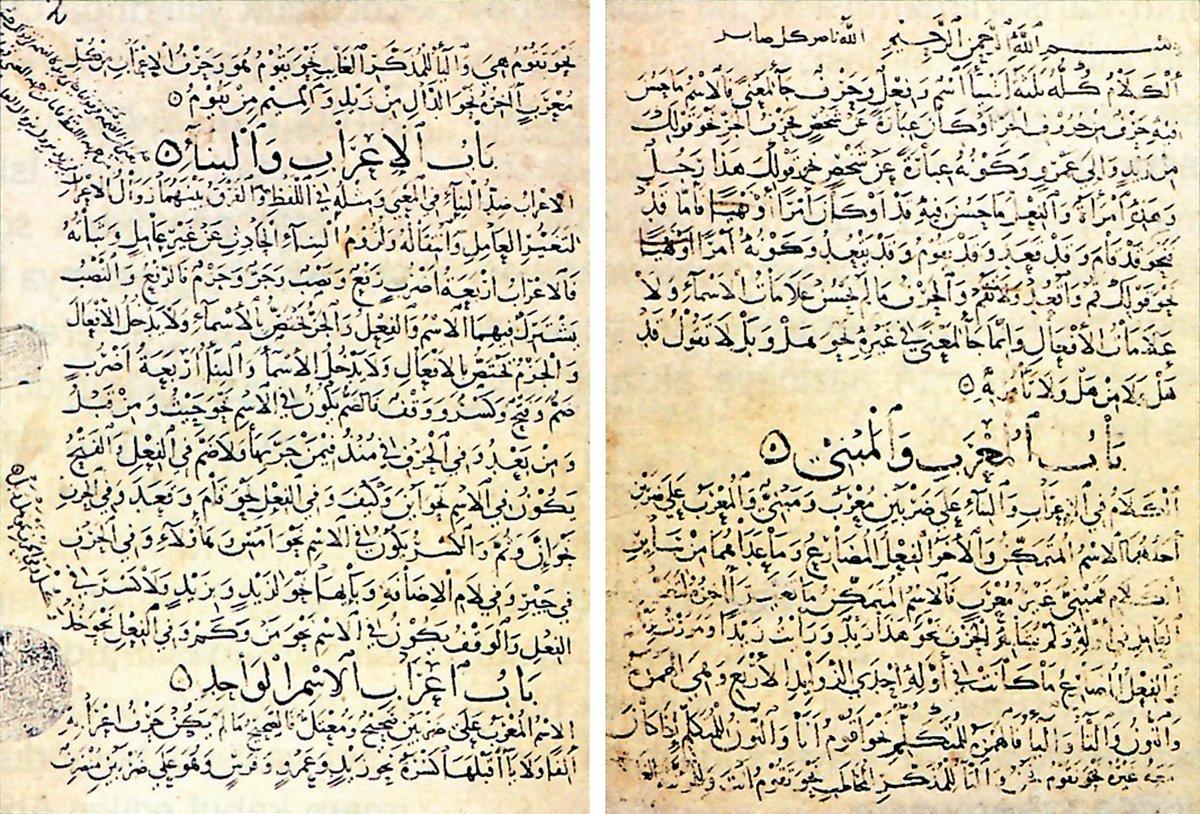 بسم الله الرحمن الرحيم الله ناصر كل صابر
الكلام كله ثلثة أشيا اسم وفعل وحرف جا لمعنى فالاسم ما حسن
فيه حرف من حروف الجر أو كان عبارة عن شخص فحرف الجر نحو قولك
من زيد وإلى عمرو وكونه عبارة عن شخص نحو قولك هذا رجل
وهذه امرأة والفعل ما حسن فيه قد أو كان أمرا أو نهيا فأما قد
فنحو قد قام وقد قعد وقد يقوم وقد يقعد وكونه أمرا أو نهيا
نحو قولك قم واقعد ولا تقم والحرف ما لم تحسن فيه علامات الأسماء ولا
علامات الأفعال وإنما جا لمعنى في غيره نحو هل وبل لا تقول قد
هل ولا من هل ولا تأمر به
باب المعرب والمبني
الكلام في الإعراب والبناء على ضربين معرب ومبني والمعرب على ضربين
أحدهما الاسم المتمكن والآخر الفعل المضارع وما عداهما من سائر
الكلام فمبني غير معرب فالاسم المتمكن ما تغير آخره لتغير
العامل في أوله ولم يشابه الحرف نحو هذا زيد ورأيت زيدا ومررت بزيد
والفعل المضارع ما كانت في أوله إحدى الزوايد الأربع وهي الهمزة
والنون والتا واليا فالهمزة للمتكلم نحو أقوم أنا والنون للمتكلم إذا كان
معه غيره نحو نقوم نحن والتا للمذكر المخاطب نحو تقوم أنت وللمؤنثة
نحو تقوم هي واليا للمذكر الغائب نحو يقوم هو وحرف الإعراب من كل
معرب آخره نحو الدال من زيد والميم من يقوم
باب الإعراب والبناء
الإعراب ضد البناء في المعنى ومثله في اللفظ والفرق بينهما زوال الإعراب
لتغير العامل وانتقاله ولزوم البناء الحادث عن غير عامل وثباته
فالإعراب أربعة أضرب رفع ونصب وجر وجزم فالرفع والنصب
يشترك فيهما الاسم والفعل والجر يختص بالأسماء ولا يدخل الأفعال
والجزم يختص بالأفعال ولا يدخل الأسما والبنا أربعة أضرب
ضم وفتح وكسر ووقف فالضم يكون في الاسم نحو حيث ومن قبل
ومن بعد وفي الحرف في منذ فيمن جر بها ولا ضم في الفعل والفتح
يكون في الاسم نحو أين وكيف وفي الفعل نحو قام وقعد وفي الحرف
نحو إن وثم والكسر يكون في الاسم نحو أمس وهؤلاء وفي الحرف
في جير وفي لام الإضافة وبائها نحو لزيد وبزيد ولا كسر في
الفعل والوقف يكون في الاسم نحو من وكم وفي الفعل نحو خذ
باب إعراب الاسم الواحد
الاسم المعرب على ضربين صحيح ومعتل فالصحيح ما لم يكن حرف إعرابه
ألفا ولا يا قبلها كسرة نحو زيد وعمرو وفرس وهو على ضربين منصرف